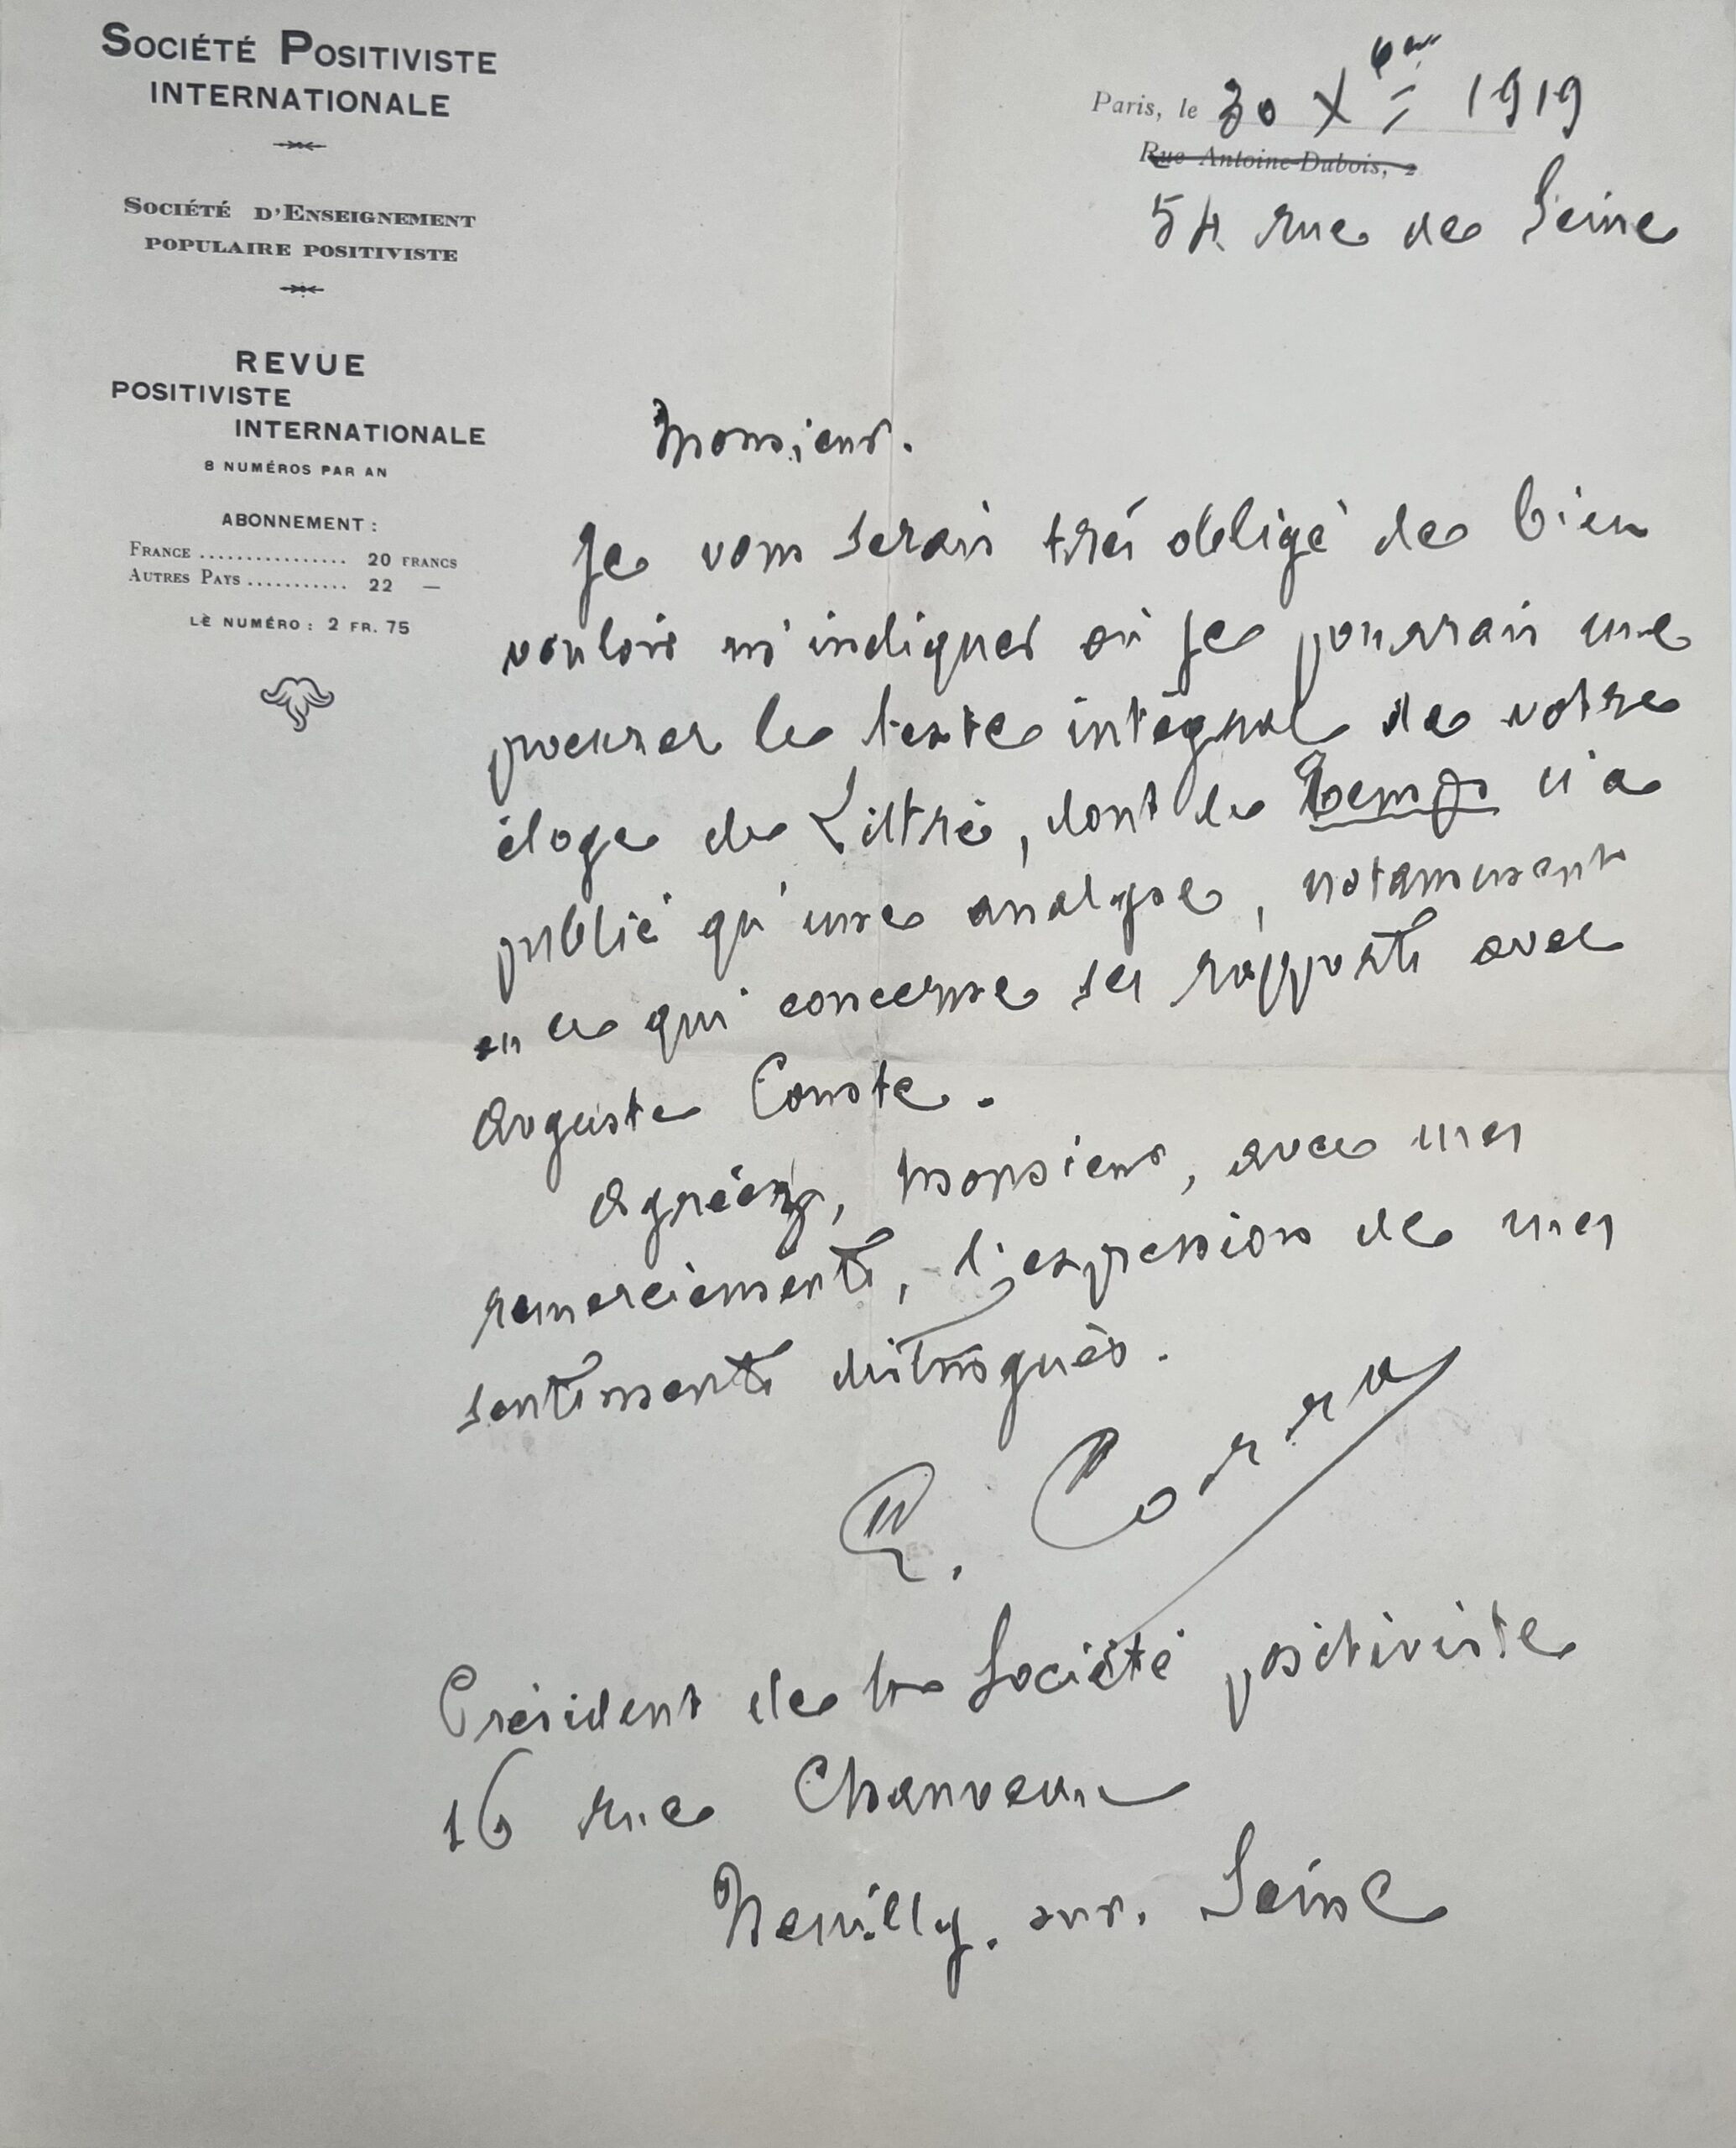 SOCIÉTÉ POSITIVISTE
INTERNATIONALE
SOCIÉTÉ D'ENSEIGNEMENT
POPULAIRE POSITIVISTE
REVUE
POSITIVISTE
INTERNATIONALE
8 NUMÉROS PAR AN
ABONNEMENT :
FRANCE ................ 20 FRANCS
AUTRES PAYS ........... 22 —
LE NUMÉRO : 2 FR. 75
Paris, le 30 Xbre 1919
Rue Antoine-Dubois, 2
54 rue de Seine
Monsieur.
Je vous serais très obligé de bien
vouloir m'indiquer où je pourrais me
procurer le texte intégral de votre
éloge de Littré, dont le Temps n'a
publié qu'une analyse, notamment
en ce qui concerne ses rapports avec
Auguste Comte.
Agréez, Monsieur, avec mes
remerciements, l'expression de mes
sentiments distingués.
E. Corra
Président de la Société positiviste
16 rue Chauveau
Neuilly-sur-Seine